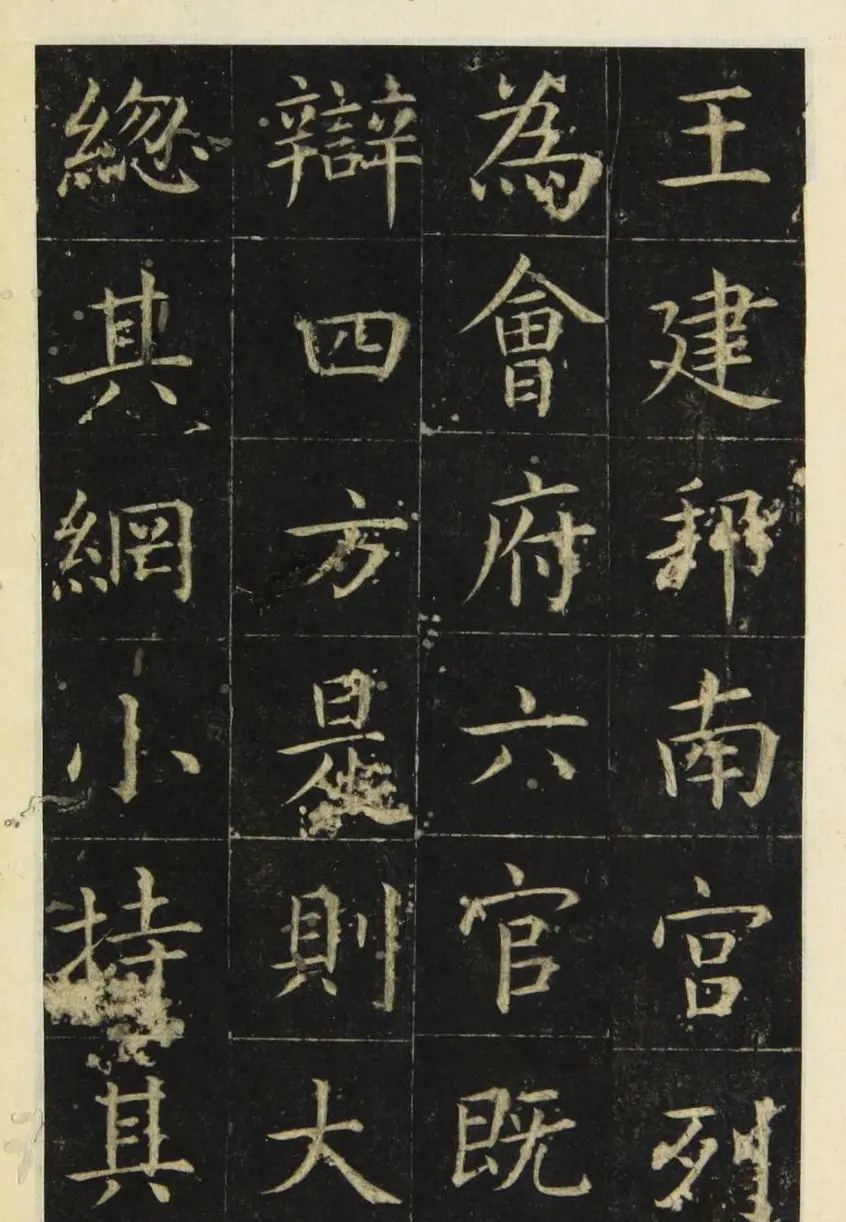 王建邦南宮列
為會府六官既
辯四方是則大
緫其網小持其